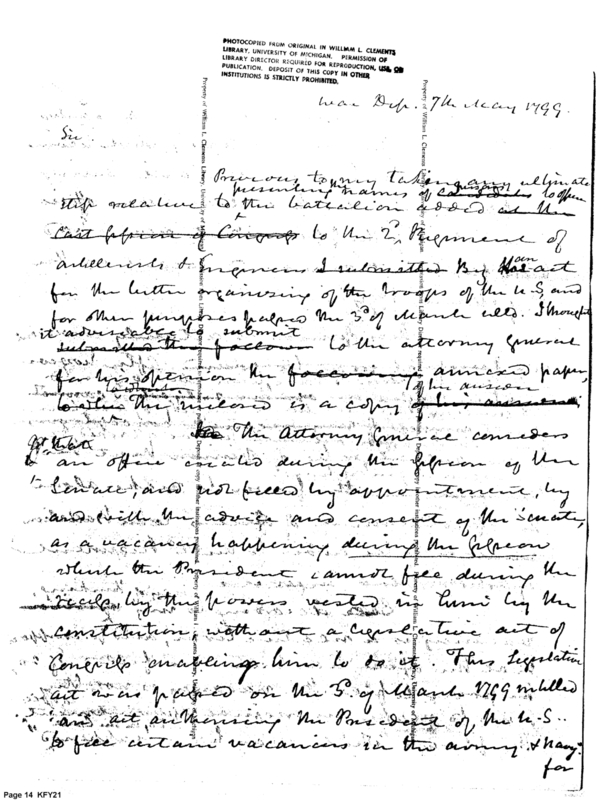 PHOTOCOPIED FROM ORIGINAL IN WILLIAM L. CLEMENTS
LIBRARY, UNIVERSITY OF MICHIGAN. PERMISSION OF
LIBRARY DIRECTOR REQUIRED FOR REPRODUCTION, USE, OR
PUBLICATION. DEPOSIT OF THIS COPY IN OTHER
INSTITUTIONS IS STRICTLY PROHIBITED.
War Dep. 7th May 1799.
Sir
Previous to my taking any ultimate
presenting names of persons to
step relative to the battalion added at the
last session of Congress to the 2d Regiment of
artillerists & Engineers I submitted By the act
for the better organising of the troops of the U.S, and
for other purposes passed the 3d of March ulto. I thought
it adviseable to submit
submitted the to the attorney General
for his opinion the following annexed paper,
his answer
The inclosed is a copy of his answer
The Attorney General considers
an office created during the session of the
Senate, and not filled by appointment, by
and with the advice and consent of the Senate,
as a vacancy happening during the session
which the President cannot fill during the
recess by the powers vested in him by the
constitution, without a legislative act of
Congress enabling him to do it. This Legislative
act was passed on the 3d of March 1799 intitled
an act authorising the President of the U.S.
to fill certain vacancies in the army & Navy
for
Page 14 KFY21